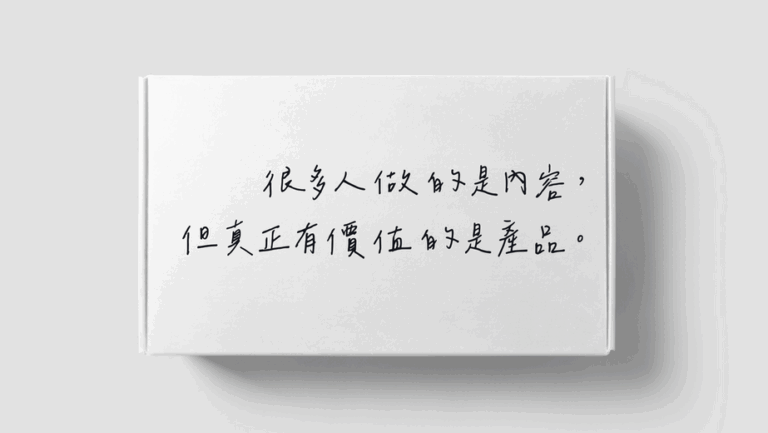 很多人做的是內容，
但真正有價值的是產品。